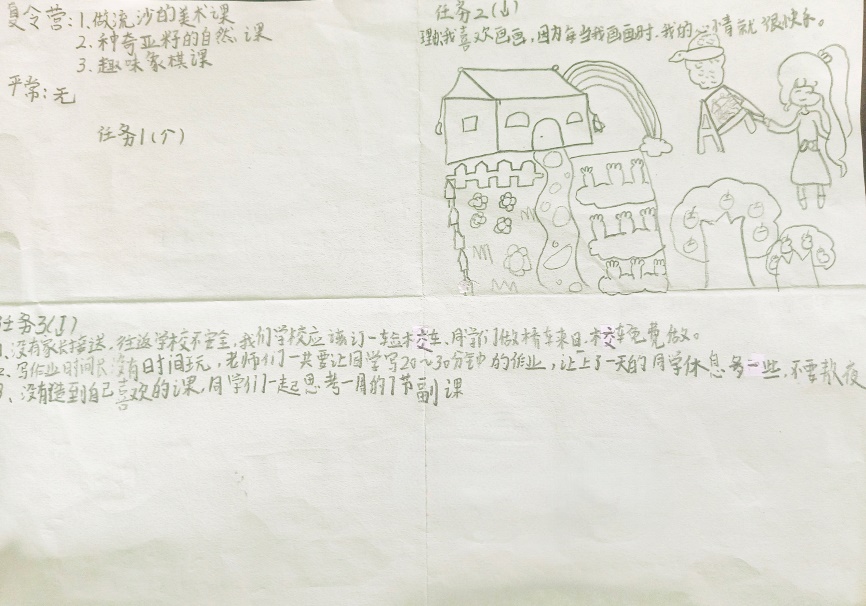 夏令营:1.做流沙的美术课
2.种奇亚籽的自然课
3.趣味象棋课
平常:无
任务1(个)
任务2(小)
理由:我喜欢画画,因为每当我画画时,我的心情就很快乐。
任务3(工)
1.没有家长接送,往返学校不安全,我们学校应该订一车校车,同学们做校车来回,校车免费做。
2、写作业时间长没有时间玩,老师们一共要让同学写20~30分钟的作业,让上了一天的同学休息多一些,不要熬夜
3、没有选到自己喜欢的课,同学们一起思考一月的1节副课